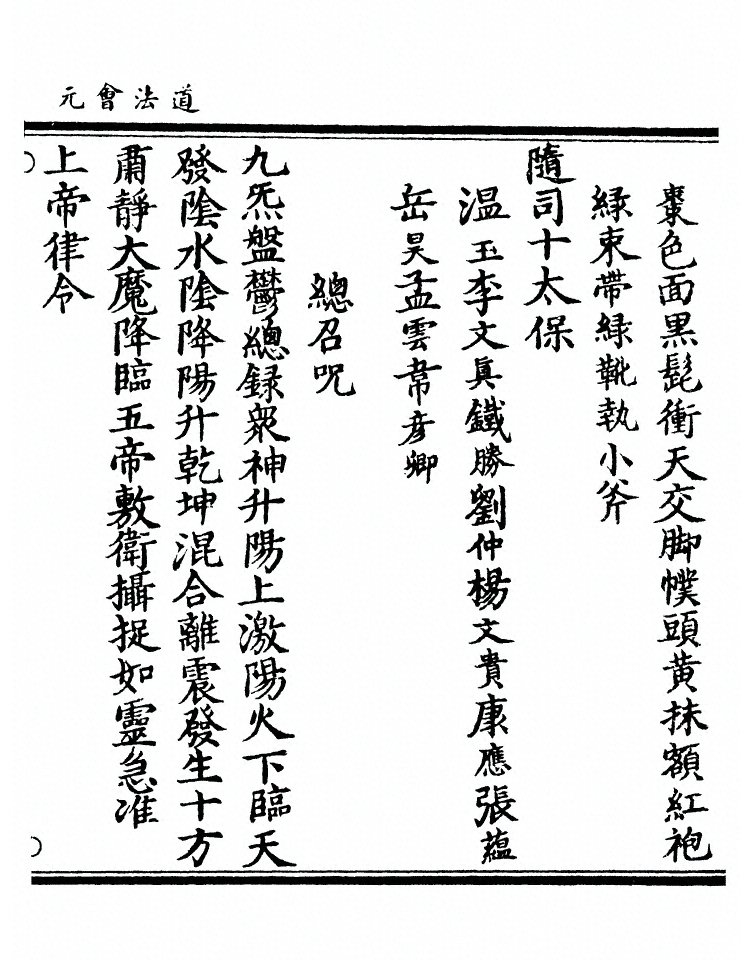 道法會元
棗色面黒髭衝天交脚幞頭黄抹額紅袍
綠束帶綠靴執小斧
隨司十太保
温玉李文真鐵勝劉仲楊文貴康應張蘊
岳昊孟雲韋彦卿
總召呪
九炁盤鬱總録衆神升陽上激陽火下臨天
發隂水隂降陽升乾坤混合離震發生十方
肅静大魔降臨五帝敷衛攝捉如靈急准
上帝律令